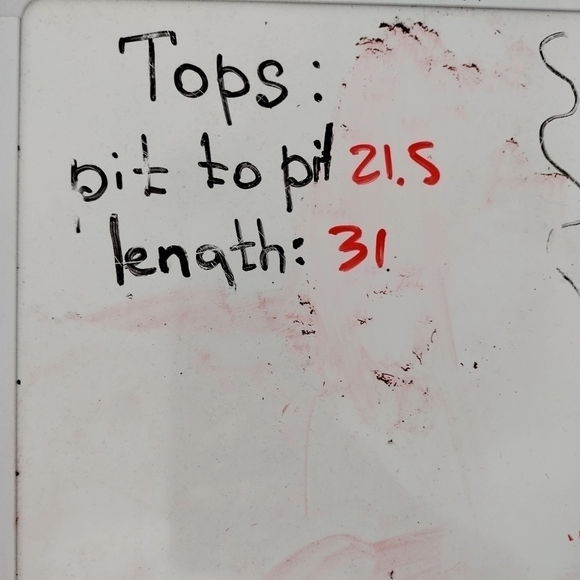 Tops:
pit to pit 21.5
length: 31